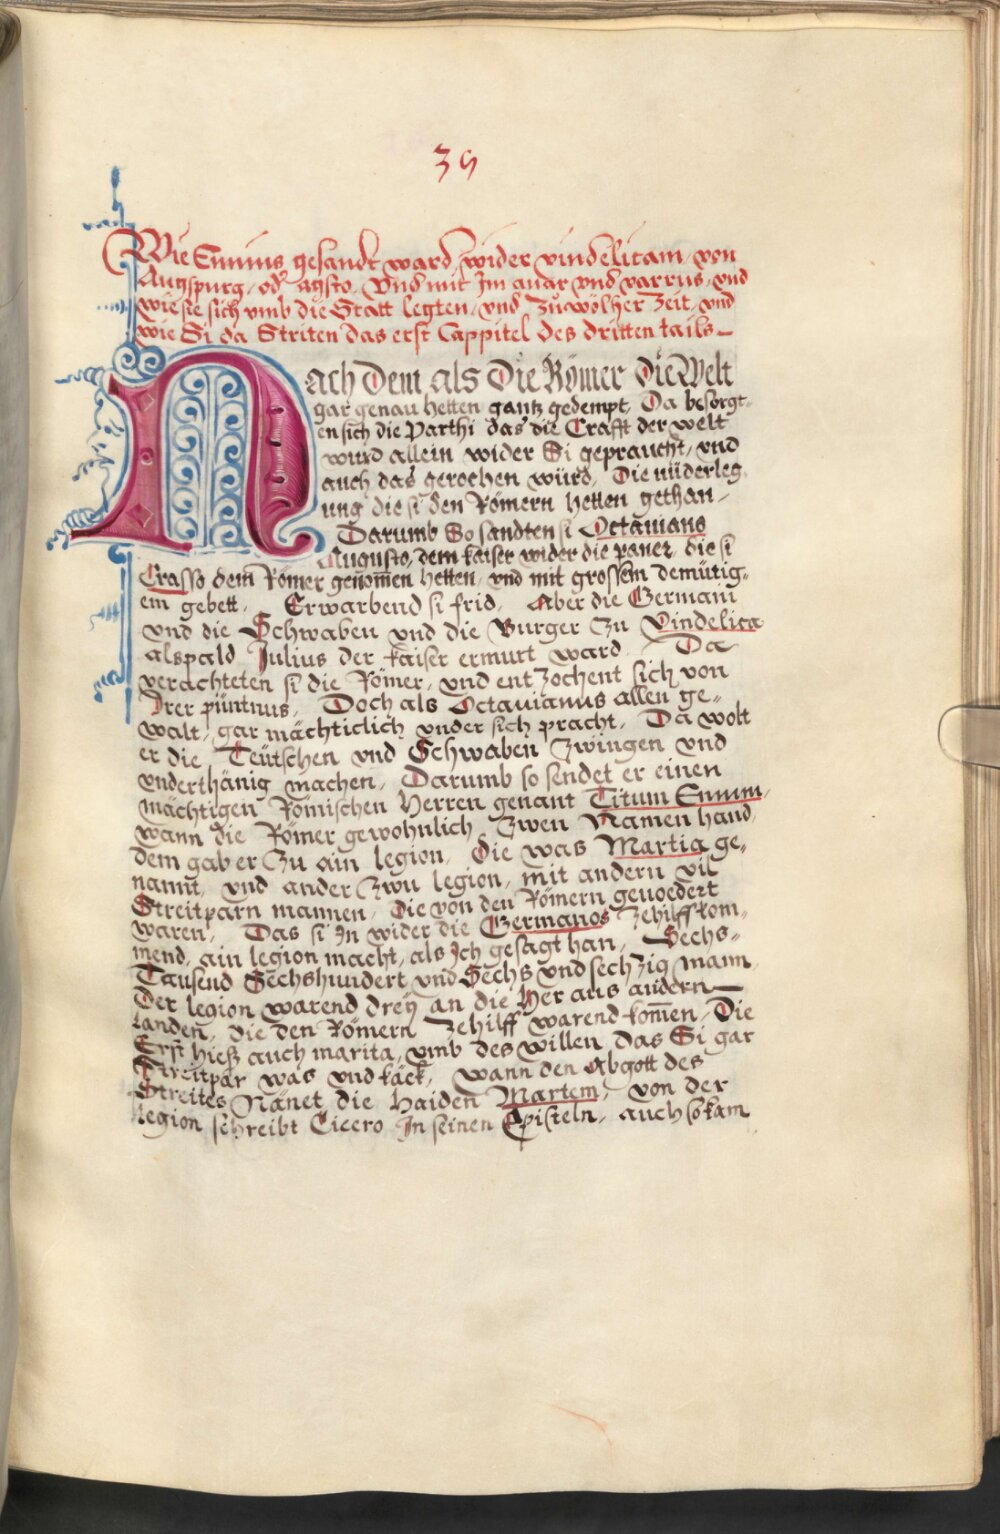 39
Wie Ennius gesandt ward wider vindelicam, von
Augspurg, od' agsto, Vnd mit Jm auar vnd varrus, vnd
wie sie sich vmb die Statt legten, vnd zů wölher Zeit, vnd
wie Si da Striten das erst Cappitel des dritten tails
Nach dem als Die Römer Die Welt
gar genau hetten gantz gedempt, Da besorgt-
en sich die Parthi das die Crafft der welt
wurd allein wider Si gepraucht, vnd
auch das gerochen würd, Die niderleg
ung die si den Römern hetten gethan,
Darumb So sandten si Octauiano
Augusto, dem kaiser wider die paner, die si
Crasso dem Römer genomen hetten, vnd mit grossem demütig=
em gebett, Erwarbend si frid, Aber die Germani
vnd die Schwaben vnd die Burger zu Vindelica
alspald Julius der kaiser ermurt ward Da
verachteten si die Römer, vnd entzochent sich von
Jrer püntnus, Doch als Octauianus allen ge=
walt, gar mächticlich vnder sich pracht, Da wolt
er die Teütschen vnd Schwaben zwingen vnd
vnderthänig machen, Darumb so sendet er einen
mächtigen Römischen Herren genant Titum Ennium,
wann die Römer gewohnlich zwen Namen hand,
dem gab er zu ain legion, die was Martia ge=
nannt, vnd ander zwu legion, mit andern vil
Streitparn mannen, die von den Römern geuoedert
waren, Das si Jn wider die Germanos zehilff kom=
mend, ain legion macht, als Jch gesagt han, Sechs=
Tausend Sechshundert vnd Sechs vnd sechzig mann
Der legion warend dreÿ an die Her aus andern
landen, die den Römern zehilff warend komen, Die
Erst hiesz auch marita, vmb des willen das Si gar
Streitpar was vnd käck, wann den Abgott des
Streites Nänet die haiden Martem, von der
legion schreibt Cicero Jn seinen Episteln, auch so kam